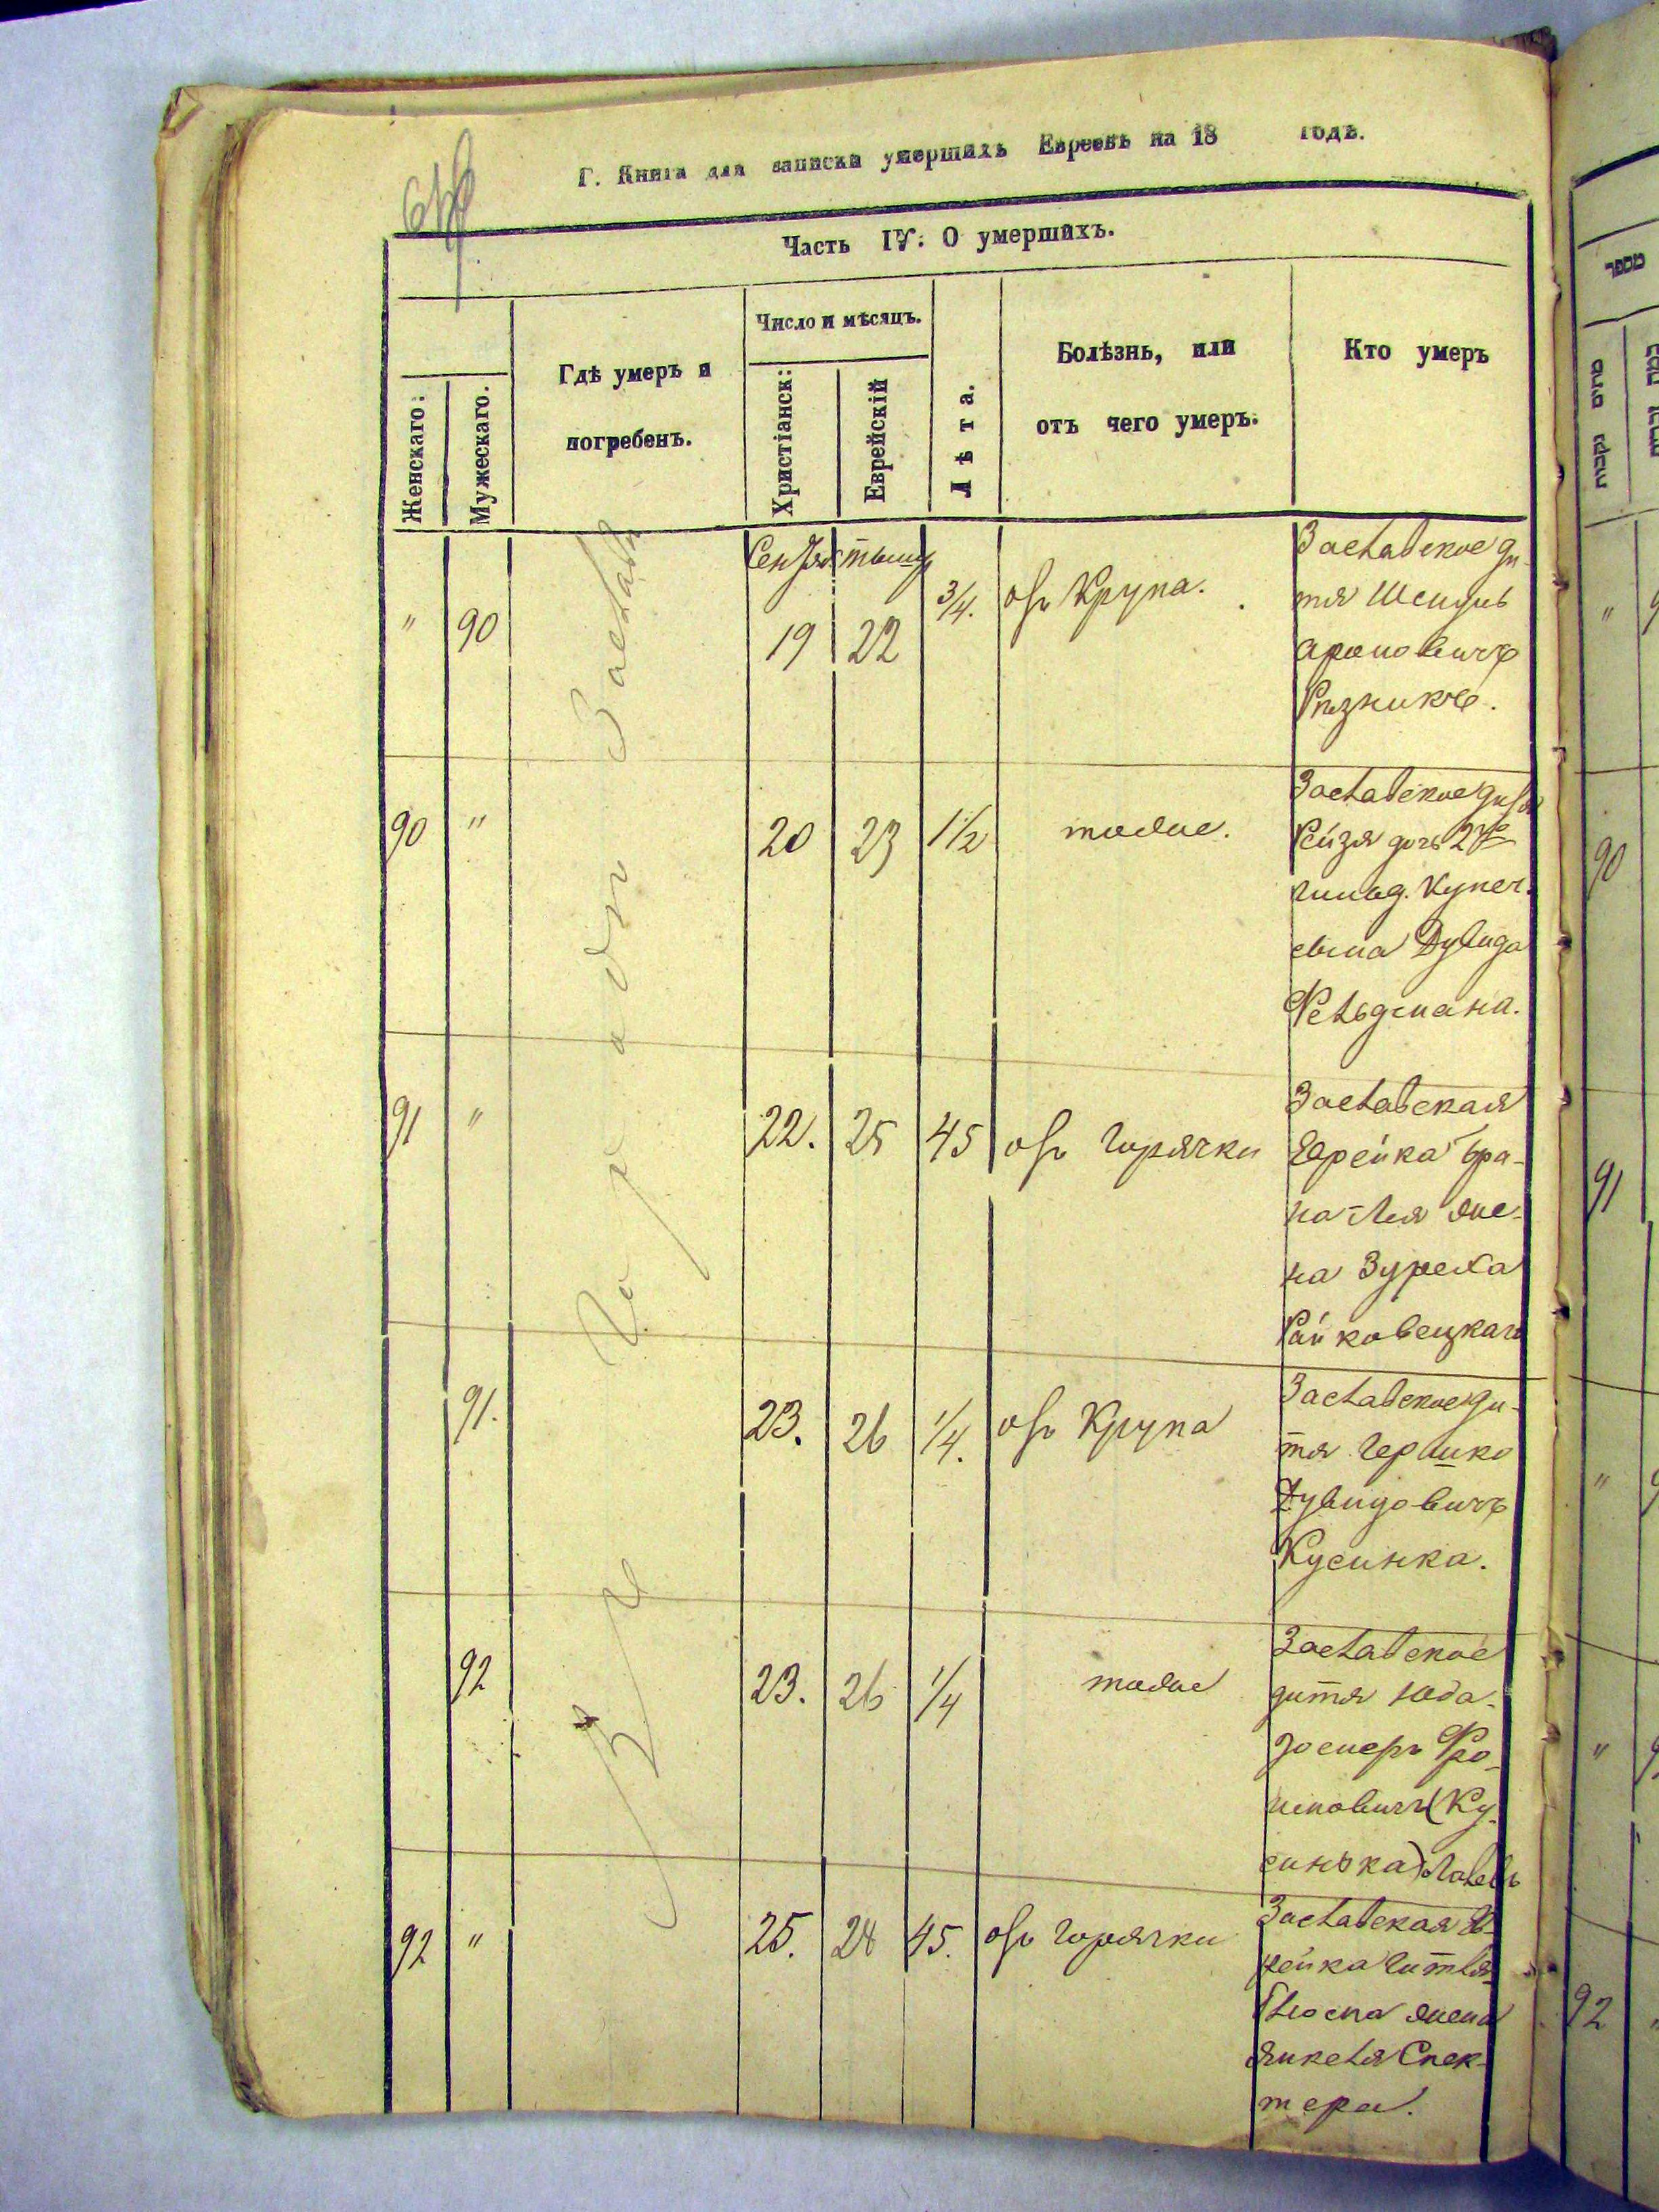 Г. Книга для записки умершихъ Евреевъ на 18 годъ.
Часть IV: О умершихъ.
Женскаго:
Мужескаго.
Гдѣ умеръ и
погребенъ.
Число и мѣсяцъ.
Христіанск:
Еврейскій
Лѣта.
Болѣзнь, или
отъ чего умеръ.
Кто умеръ
Въ городѣ Заславѣ
" 90
19 22 3/4. отъ Крупа.
Заславское ди-
тя
Ароновичъ
Рѣзникъ.
90 " 20 23 1 1/2 тоже.
Заславское дитя
Рейзя дочь 2й
гильд. Купеч.
сына Дувида
Фельдмана.
91 " 22. 25 45 отъ горячки
Заславская
Еврейка Бра-
на-Лея же-
на
Райковецкаго
91. 23. 26 1/4. отъ Крупа
Заславское ди-
тя Гершко
Дувидовичъ
Кусинка.
92 23. 26 1/4 тоже
Заславское
дитя
(Ку-
синька)
92 " 25. 28 45. отъ горячки
Заславская Ев-
рейка Гитля
жена
Янкеля Спек-
тера.
מספר
90
91
92